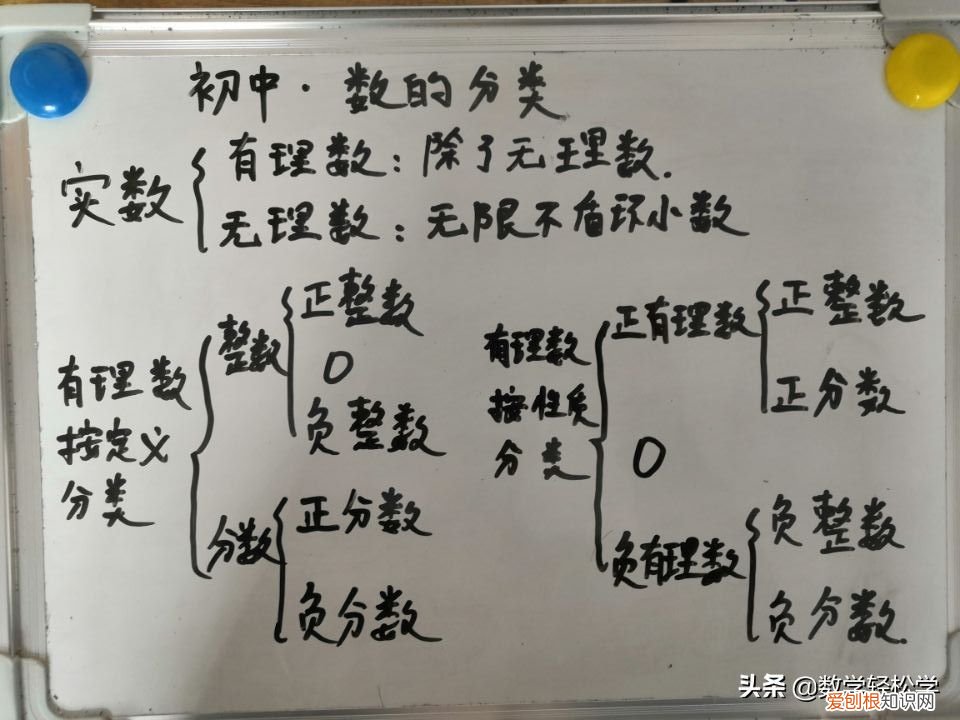 初中·数的分类
实数
有理数：除了无理数.
无理数：无限不循环小数
有理数
按定义
分类
整数
正整数
0
负整数
分数
正分数
负分数
有理数
按性质
分类
正有理数
正整数
正分数
0
负有理数
负整数
负分数.
头条 @数学轻松学
爱刨根知识网